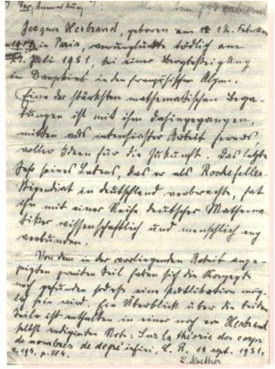 Jacques Herbrand, geboren am 12. Februar
1908 in Paris, verunglückte tödlich am
27. Juli 1931, bei einer Bergbesteigung
in Dauphiné in den französischen Alpen.
Eine der stärksten mathematischen Bega-
bungen ist mit ihm dahingegangen,
mitten aus intensivster Arbeit heraus,
voller Ideen für die Zukunft. Das letzte
Jahr seines Lebens, das er als Rockefeller-
stipendiat in Deutschland verbrachte, hat
ihn mit einer Reihe deutscher Mathema-
tiker wissenschaftlich und menschlich eng
verbunden.
Von dem in der vorliegenden Arbeit ange-
zeigten zweiten Teil haben sich die Konzepte
noch gefunden sodass eine Publikation mög-
lich sein wird. Ein Überblick über die beiden
Teile ist enthalten in einer noch von Herbrand
selbst redigierten Note: Sur la théorie des corps
de nombres de degré infini. C. R. 14 sept. 1931,
t. 193, p. 504.
E. Noether